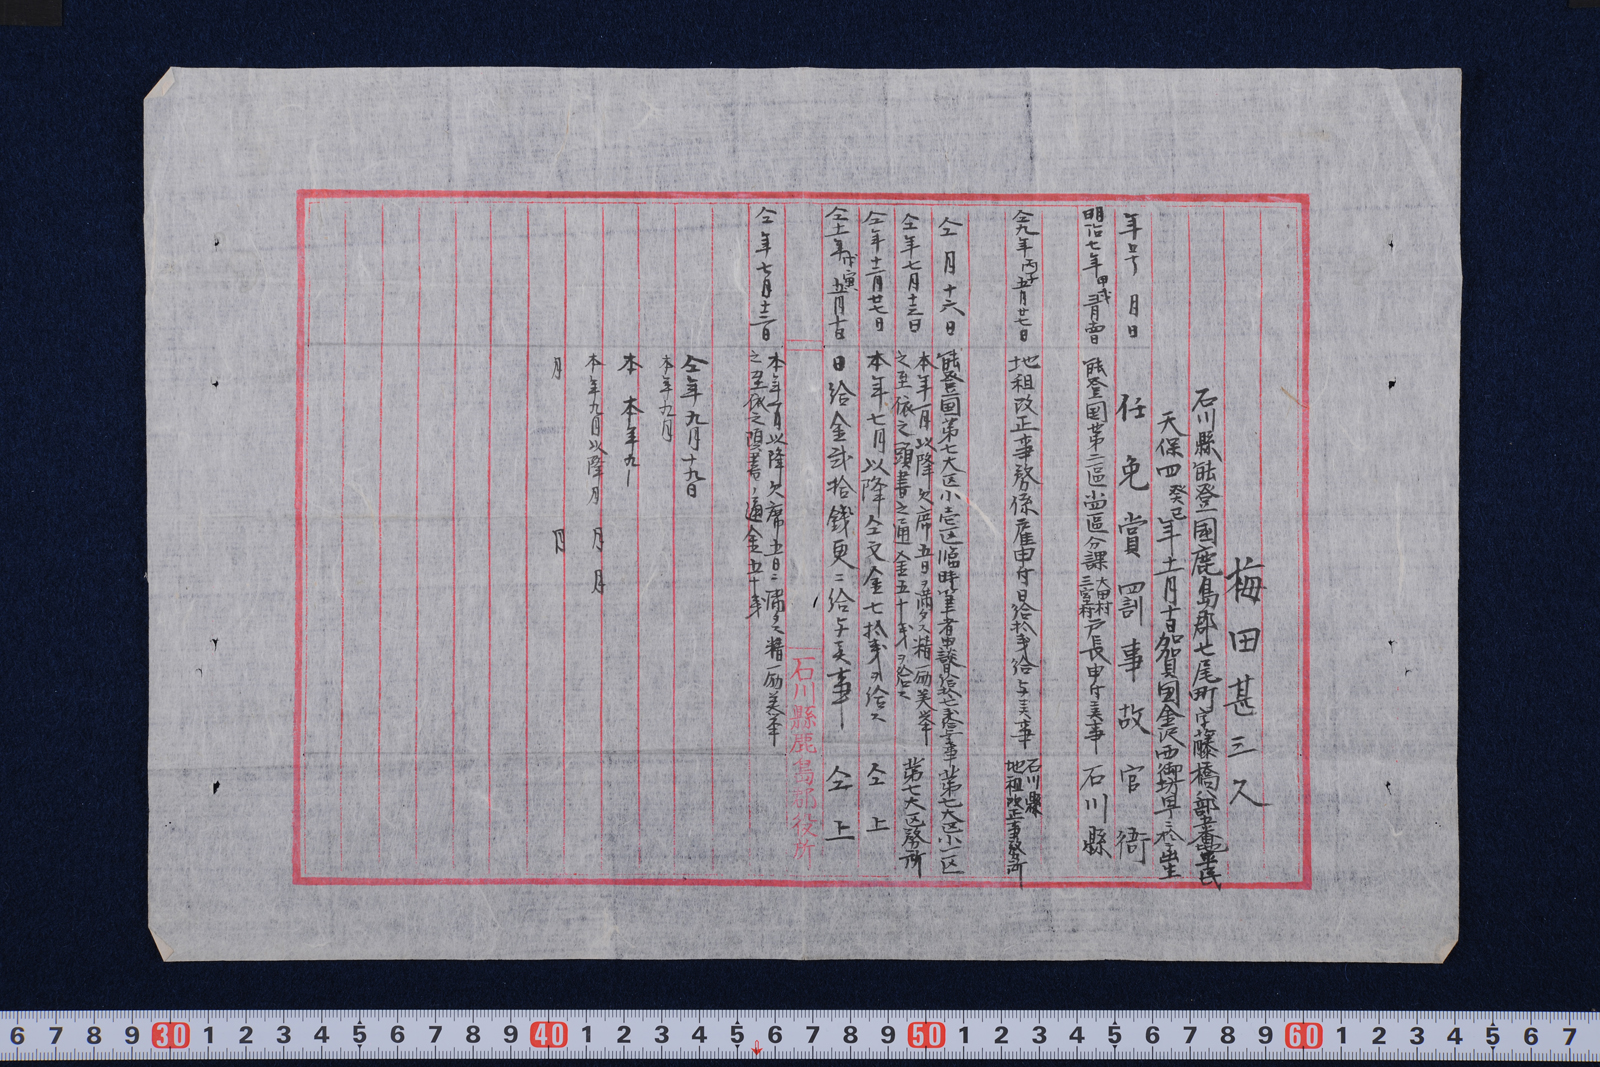 梅田甚三久
石川縣能登國鹿島郡七尾町字藤橋部 番 平民
天保四癸巳年十一月十日加賀国金沢西御坊 生
年号月日 任免賞罰事故 官衙
明治七年甲戌三月 日 能登国第二區 當區分課大田村三室村戸長申付候事 石川縣
仝九年丙子五月廿七日 地租改正事務係雇申付日給拾銭給与候事 石川縣地租改正事務所
仝月十六日 能登国第七大区小壱区臨時筆者申 候事 第七大区小一区
仝年七月十三日 本年一月以降欠席五日ヲ満タス精励 之至依之頭書之通金五十銭ヲ給ス 第七大区務所
仝年十二月廿七日 本年七月以降仝文金七拾銭ヲ給ス 仝上
仝十一年戊寅五月十日 日給金弐拾銭更ニ給与候事 仝上
石川縣鹿島郡役所
仝年七月十三日 本年一月以降欠席五日ニ満タス精励 之至依之頭書ノ通金五十銭
仝年九月十九日
本年九月
本 本年九
本年九月以降月 月 月
月 月
6 7 8 9 30 1 2 3 4 5 6 7 8 9 40 1 2 3 4 5 6 7 8 9 50 1 2 3 4 5 6 7 8 9 60 1 2 3 4 5 6 7